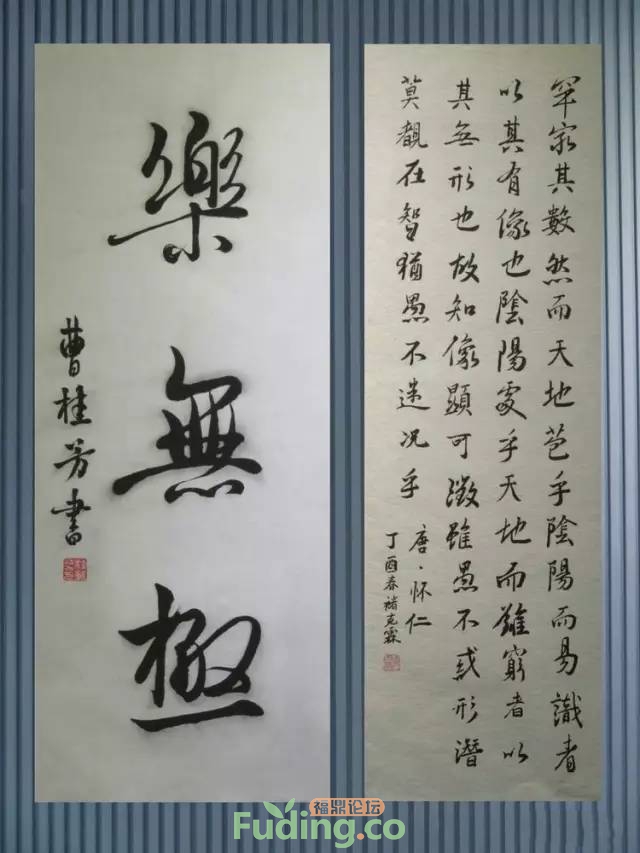 罕窮其數然而天地苞乎陰陽而易識者
以其有像也陰陽處乎天地而難窮者以
其無形也故知像顯可徵雖愚不惑形潛
莫覩在智猶愚不迷况乎
唐·怀仁
丁酉春褚克霖
樂無極
曹桂芳書
福鼎论坛
Fuding.co